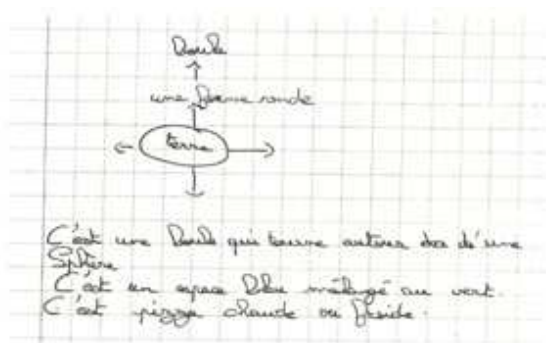 Boule
une forme ronde
terre
C'est une Boule qui tourne autour d'une
Sphère
C'est un espace Bleu mélangé au vert.
C'est pizza chaude ou froide.